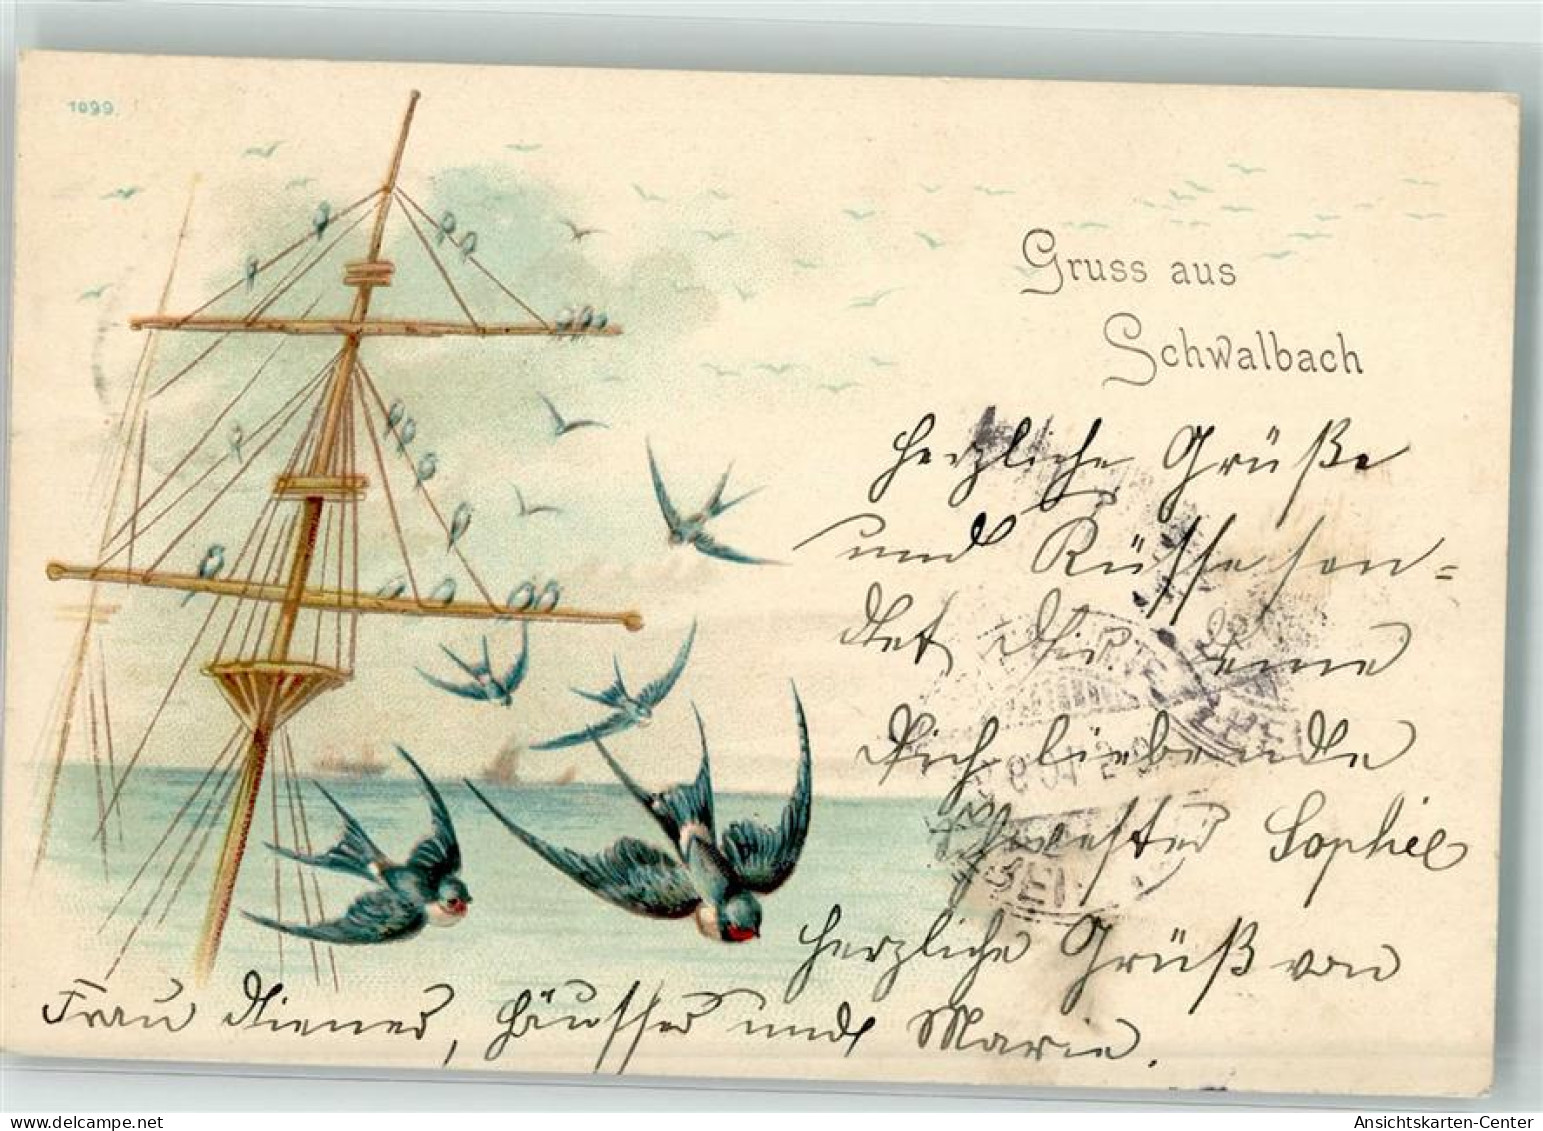 1099.
Gruss aus
Schwalbach
Herzliche Grüße
und Küsse sen=
det Dir Deine
Dich liebende
Schwester Sophie
Herzliche Grüß von
Frau Diener, Häusser und Marie.
delcampe.net
Ansichtskarten-Center